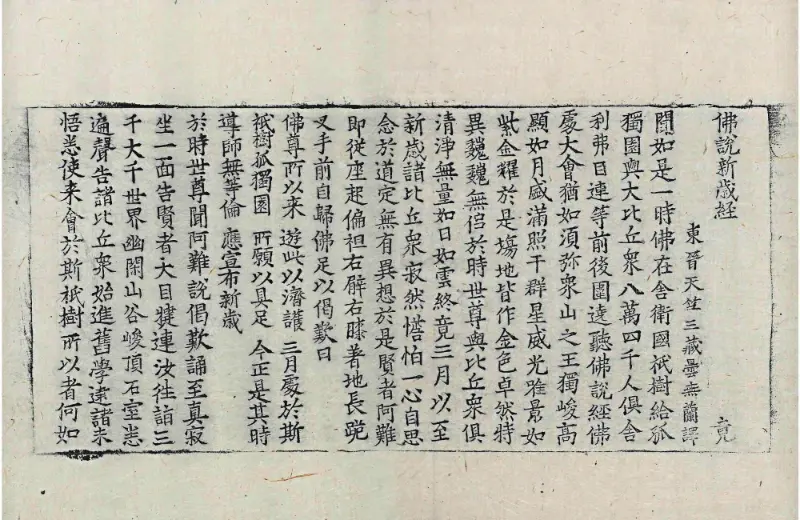 佛說新歲經
東晉天竺三藏曇無蘭譯 竟
聞如是一時佛在舍衛國祇樹給孤
獨園與大比丘衆八萬四千人俱舍
利弗目連等前後圍遶聽佛說經佛
處大會猶如須弥衆山之王獨峻高
顯如月盛滿照于群星威光雅最如
紫金耀於是塲地皆作金色卓然特
異巍巍無侶於時世尊與比丘衆俱
清淨無量如日如雲終竟三月以至
新歲諸比丘衆寂然憺怕一心自思
念於道定無有異想於是賢者阿難
即從座起偏袒右臂右膝著地長跪
叉手前自歸佛足以偈歎曰
佛尊所以来 遊此以濟護 三月處於斯
祇樹孤獨園 所願以具足 今正是其時
導師無等倫 應宣布新歲
於時世尊聞阿難說偈歎誦至真寂
坐一面告賢者大目揵連汝徃詣三
千大千世界幽閑山谷峻頂石室悉
遍聲告諸比丘衆始進舊學遠諸未
悟悉使来會於斯祇樹所以者何如